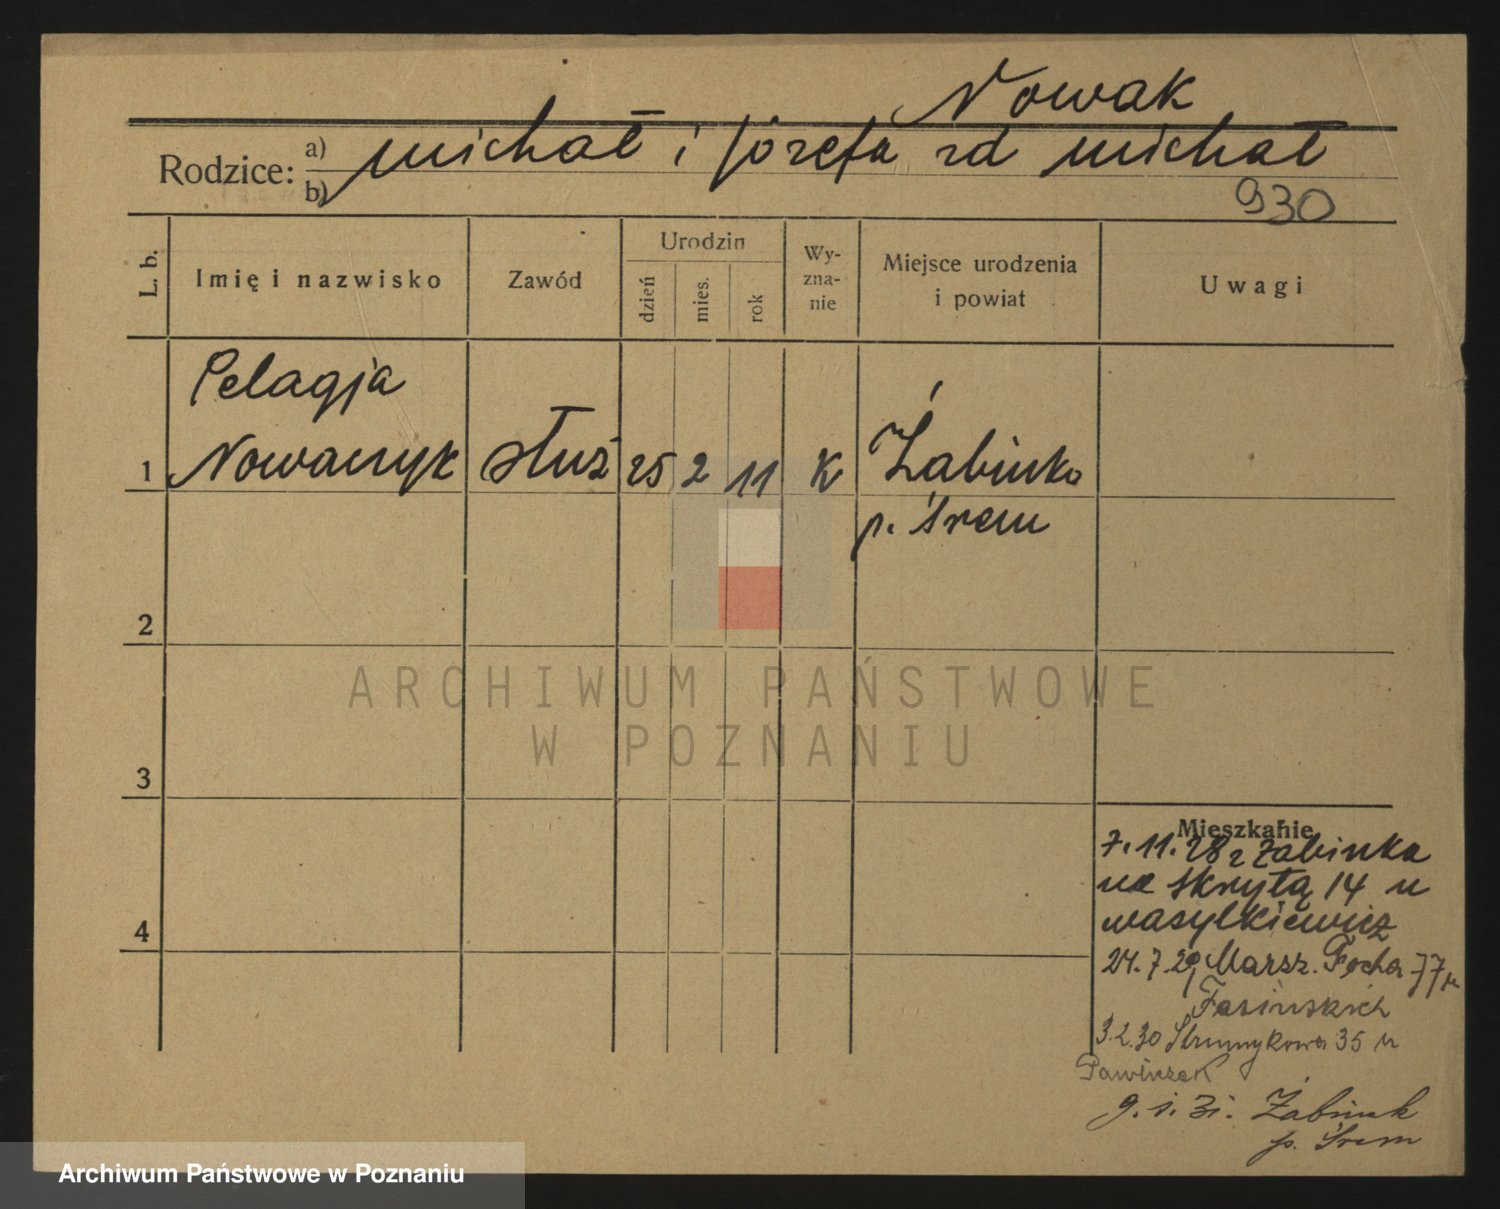 Nowak
Rodzice: a) Michał i Józefa zd Michał
b)
930
L. b.
Imię i nazwisko
Zawód
Urodzin
dzień
mies.
rok
Wy-
zna-
nie
Miejsce urodzenia
i powiat
Uwagi
Pelagja
1 Nowaczyk służ 25 2 11 K Żabinko
p. Śrem
2
ARCHIWUM PAŃSTWOWE
W POZNANIU
3
Mieszkanie
7.11.28 z Żabinka
na Skrytą 14 u
Wasylkiewicz
4
24.7.29 Marsz. Focha 77 u
Jasińskich
3.2.30 Strumykowa 35 u
Pawlczak
9.1.31. Żabink
p. Śrem
Archiwum Państwowe w Poznaniu